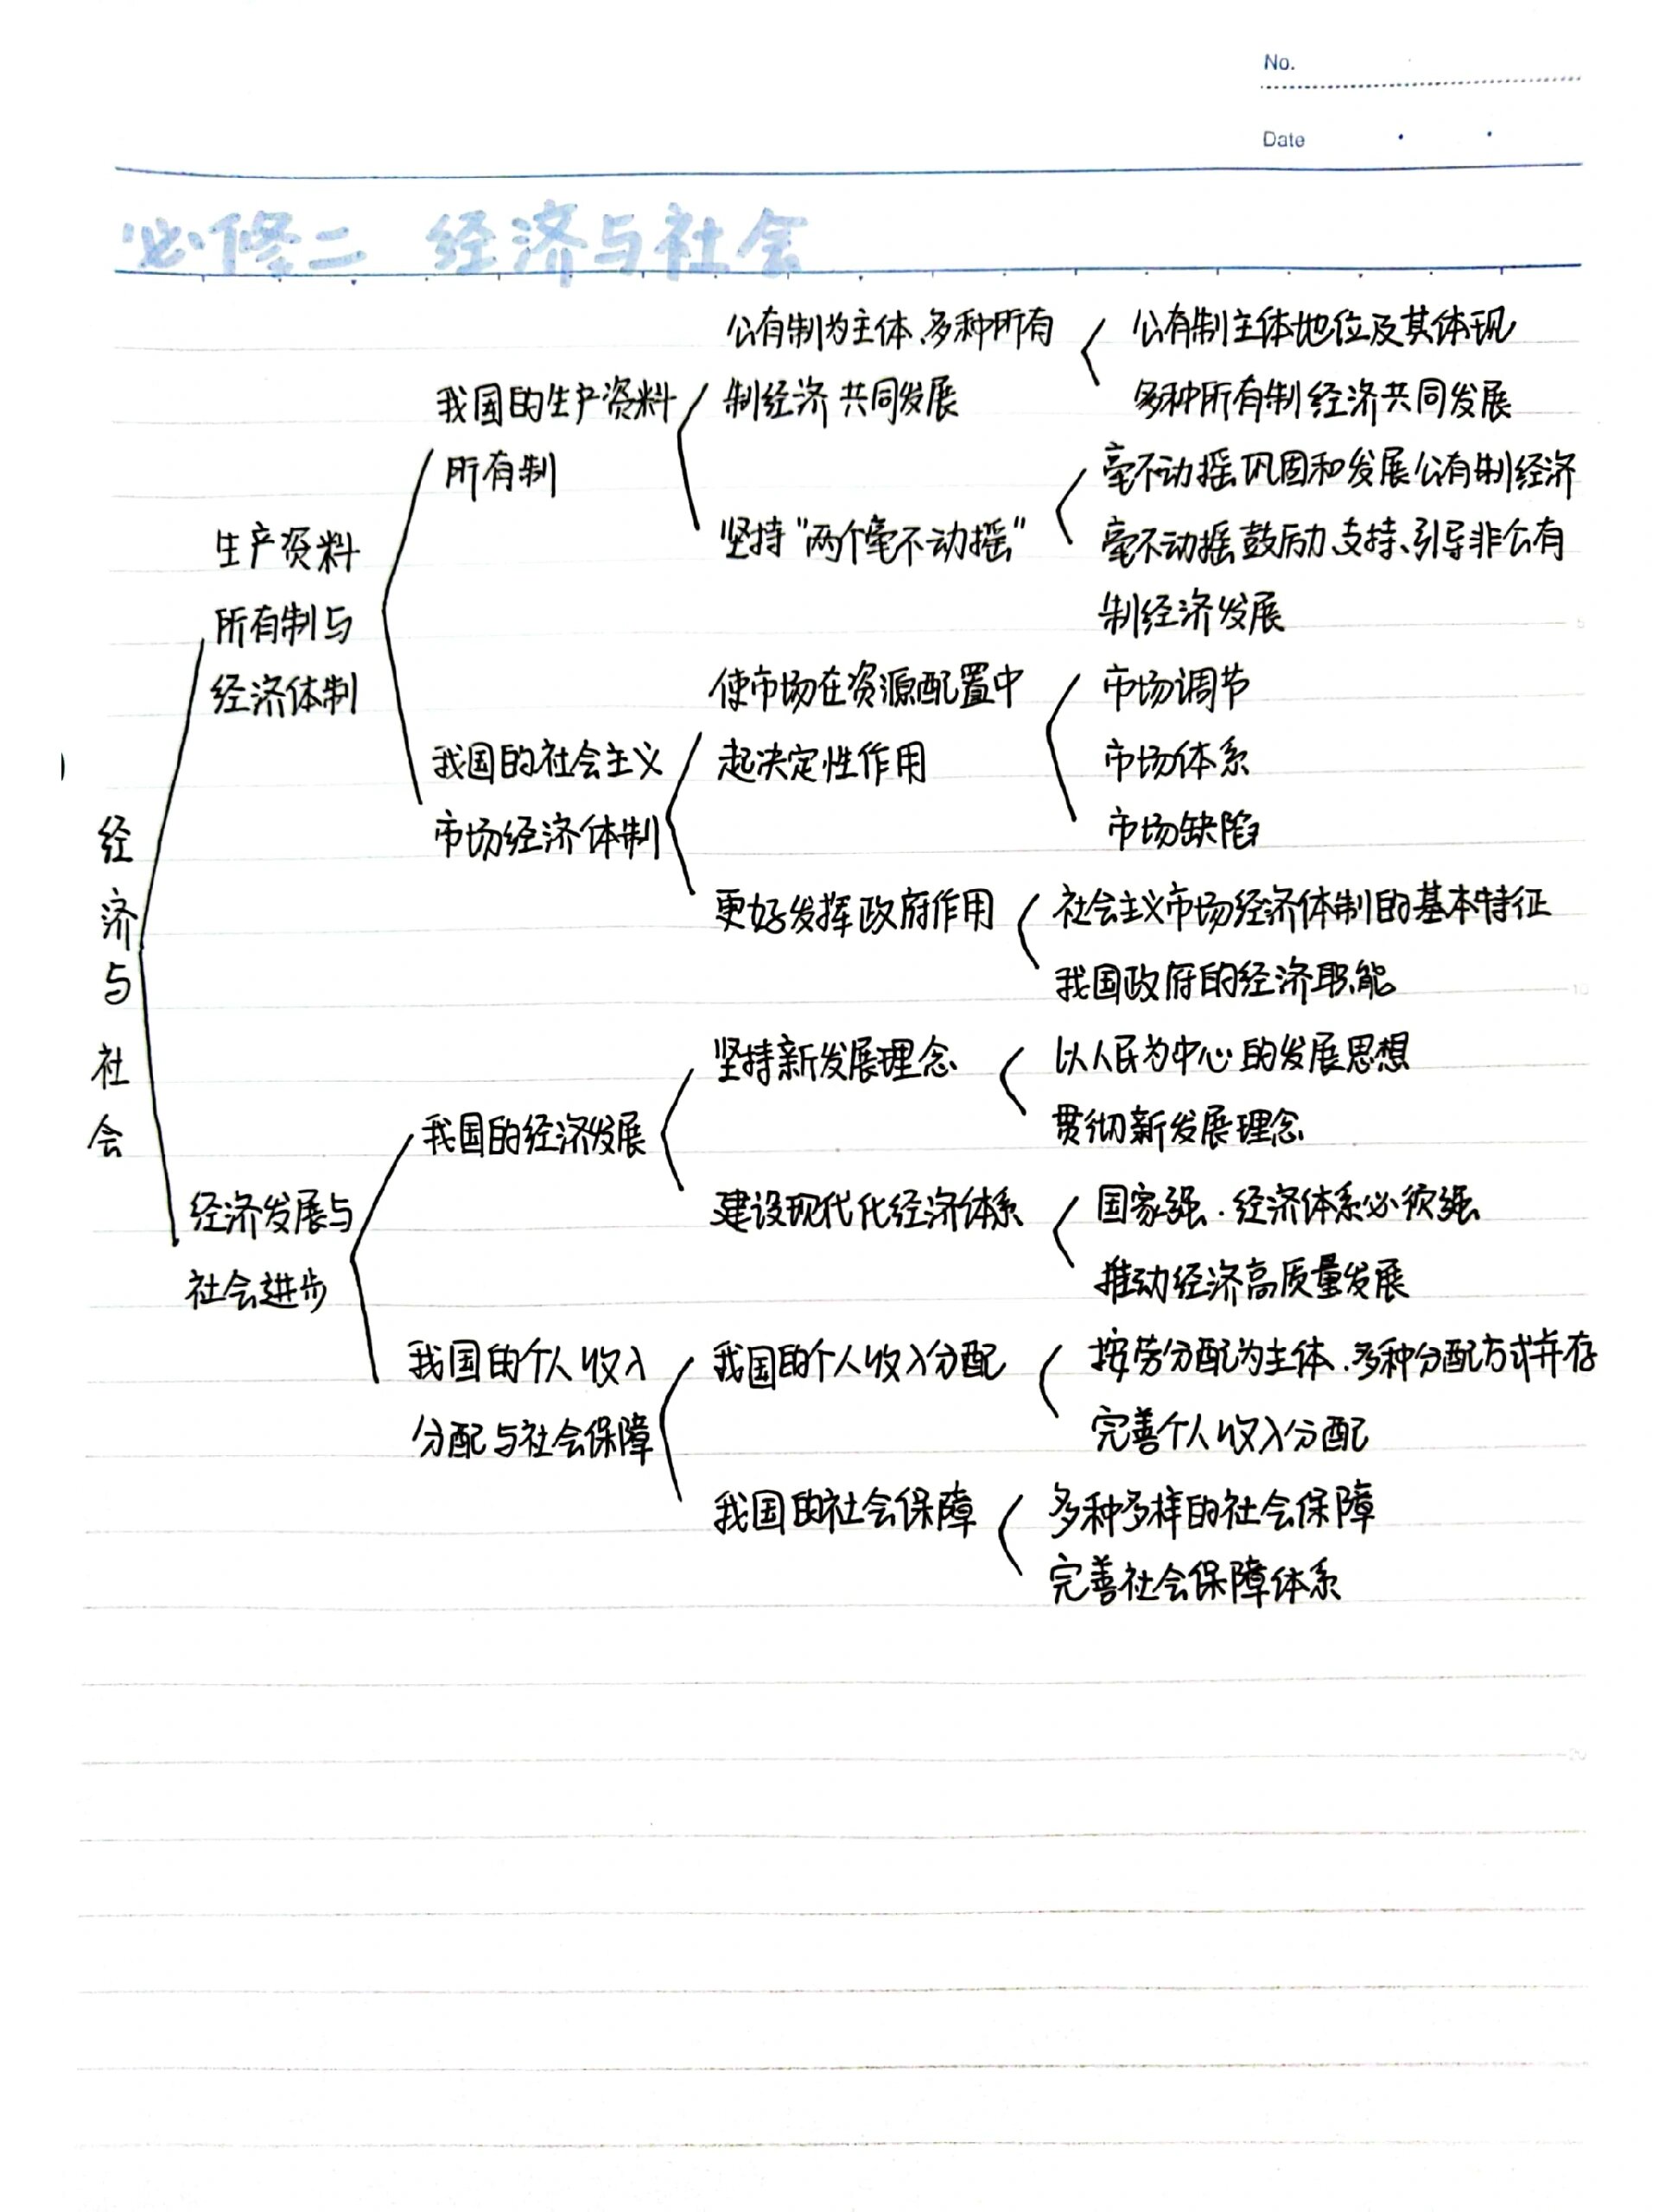 No.
Date
必修二 经济与社会
公有制为主体、多种所有
公有制主体地位及其体现
我国的生产资料
制经济共同发展
多种所有制经济共同发展
所有制
毫不动摇巩固和发展公有制经济
生产资料
坚持“两个毫不动摇”
毫不动摇鼓励、支持、引导非公有
所有制与
制经济发展
经济体制
使市场在资源配置中
市场调节
我国的社会主义
起决定性作用
市场体系
市场经济体制
市场缺陷
更好发挥政府作用
社会主义市场经济体制的基本特征
我国政府的经济职能
经济与社会
坚持新发展理念
以人民为中心的发展思想
我国的经济发展
贯彻新发展理念
经济发展与
建设现代化经济体系
国家强.经济体系必须强
社会进步
推动经济高质量发展
我国的个人收入
我国的个人收入分配
按劳分配为主体.多种分配方式并存
分配与社会保障
完善个人收入分配
我国的社会保障
多种多样的社会保障
完善社会保障体系